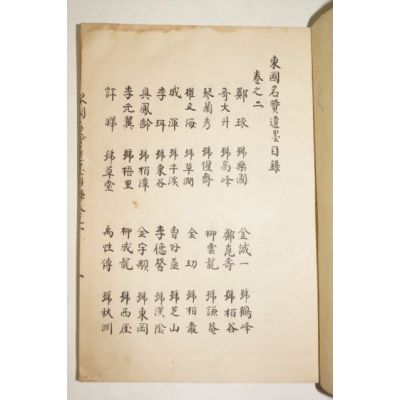 東國名賢遺墨目錄
卷之二
鄭琢 號藥圃 金誠一 號鶴峰
奇大升 號高峰 鄭崑壽 號栢谷
琴蘭秀 號惺齋 柳雲龍 號謙菴
權文海 號草澗 金玏 號栢巖
成渾 號牛溪 曺好益 號芝山
李珥 號栗谷 李德馨 號漢陰
具鳳齡 號栢潭 金宇顒 號東岡
李元翼 號梧里 柳成龍 號西厓
許曄 號草堂 禹性傳 號秋淵